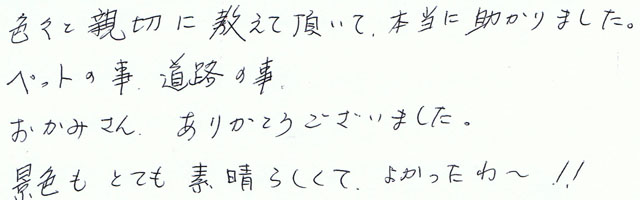 色々と親切に教えて頂いて、本当に助かりました。
ペットの事、道路の事、
おかみさん、ありがとうございました。
景色もとても素晴らしくて、よかったわ〜!!